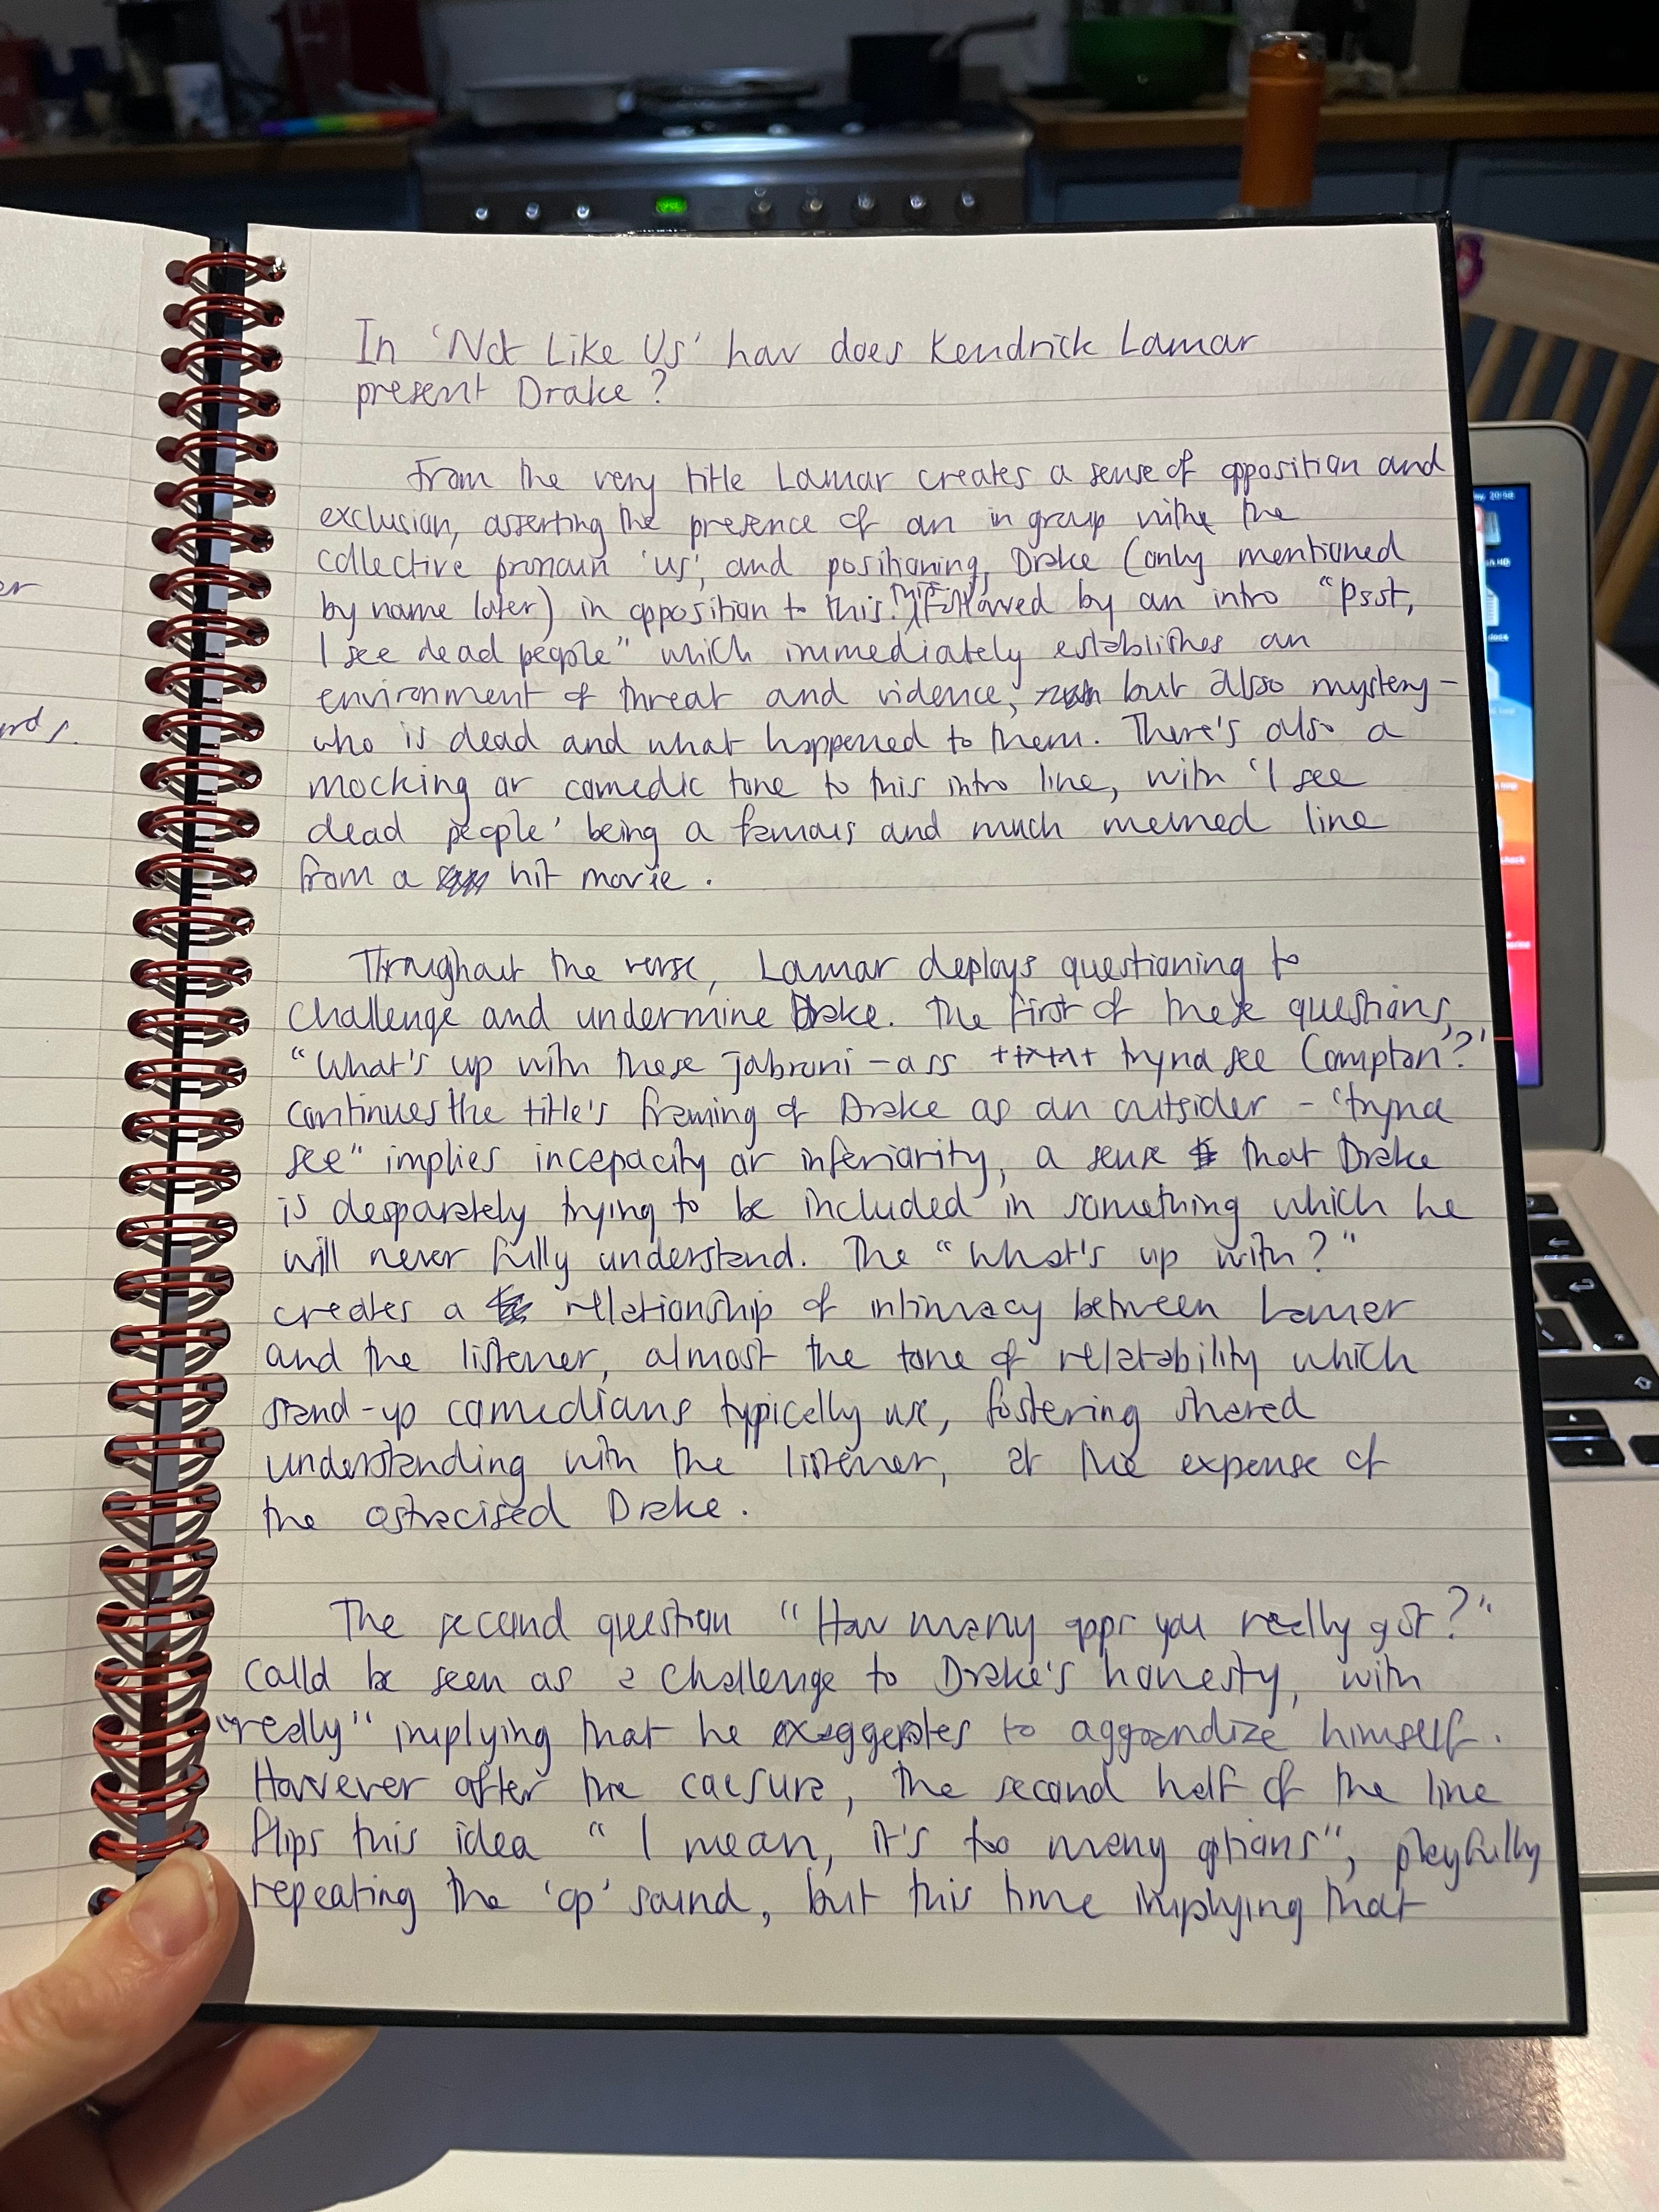 er
ards.
In 'Not Like Us' how does Kendrick Lamar
present Drake?
From the very title Lamar creates a sense of opposition and
exclusion, asserting the presence of an in group withe the
collective pronoun 'us', and positioning Drake (only mentioned
by name later) in opposition to this. This is followed by an intro "Psst,
I see dead people" which immediately establishes an
environment of threat and violence, but also mystery –
who is dead and what happened to them. There's also a
mocking or comedic tone to this intro line, with 'I see
dead people' being a famous and much memed line
from a hit movie.
Throughout the verse, Lamar deploys questioning to
challenge and undermine Drake. The first of these questions,
"What's up with these jabroni-ass ++*+*+ tryna see Compton?"
continues the title's framing of Drake as an outsider – 'tryna
see" implies incapacity or inferiority, a sense that Drake
is desparately trying to be included in something which he
will never fully understand. The "What's up with?"
creates a relationship of intimacy between Lamar
and the listener, almost the tone of relatability which
stand-up comedians typically use, fostering shared
understanding with the listener, at the expense of
the ostracised Drake.
The second question "How many opps you really got?"
could be seen as a challenge to Drake's honesty, with
"really" implying that he exaggerates to aggrandize himself.
However after the caesura, the second half of the line
flips this idea "I mean, it's too many options", playfully
repeating the 'op' sound, but this time implying that
20:58